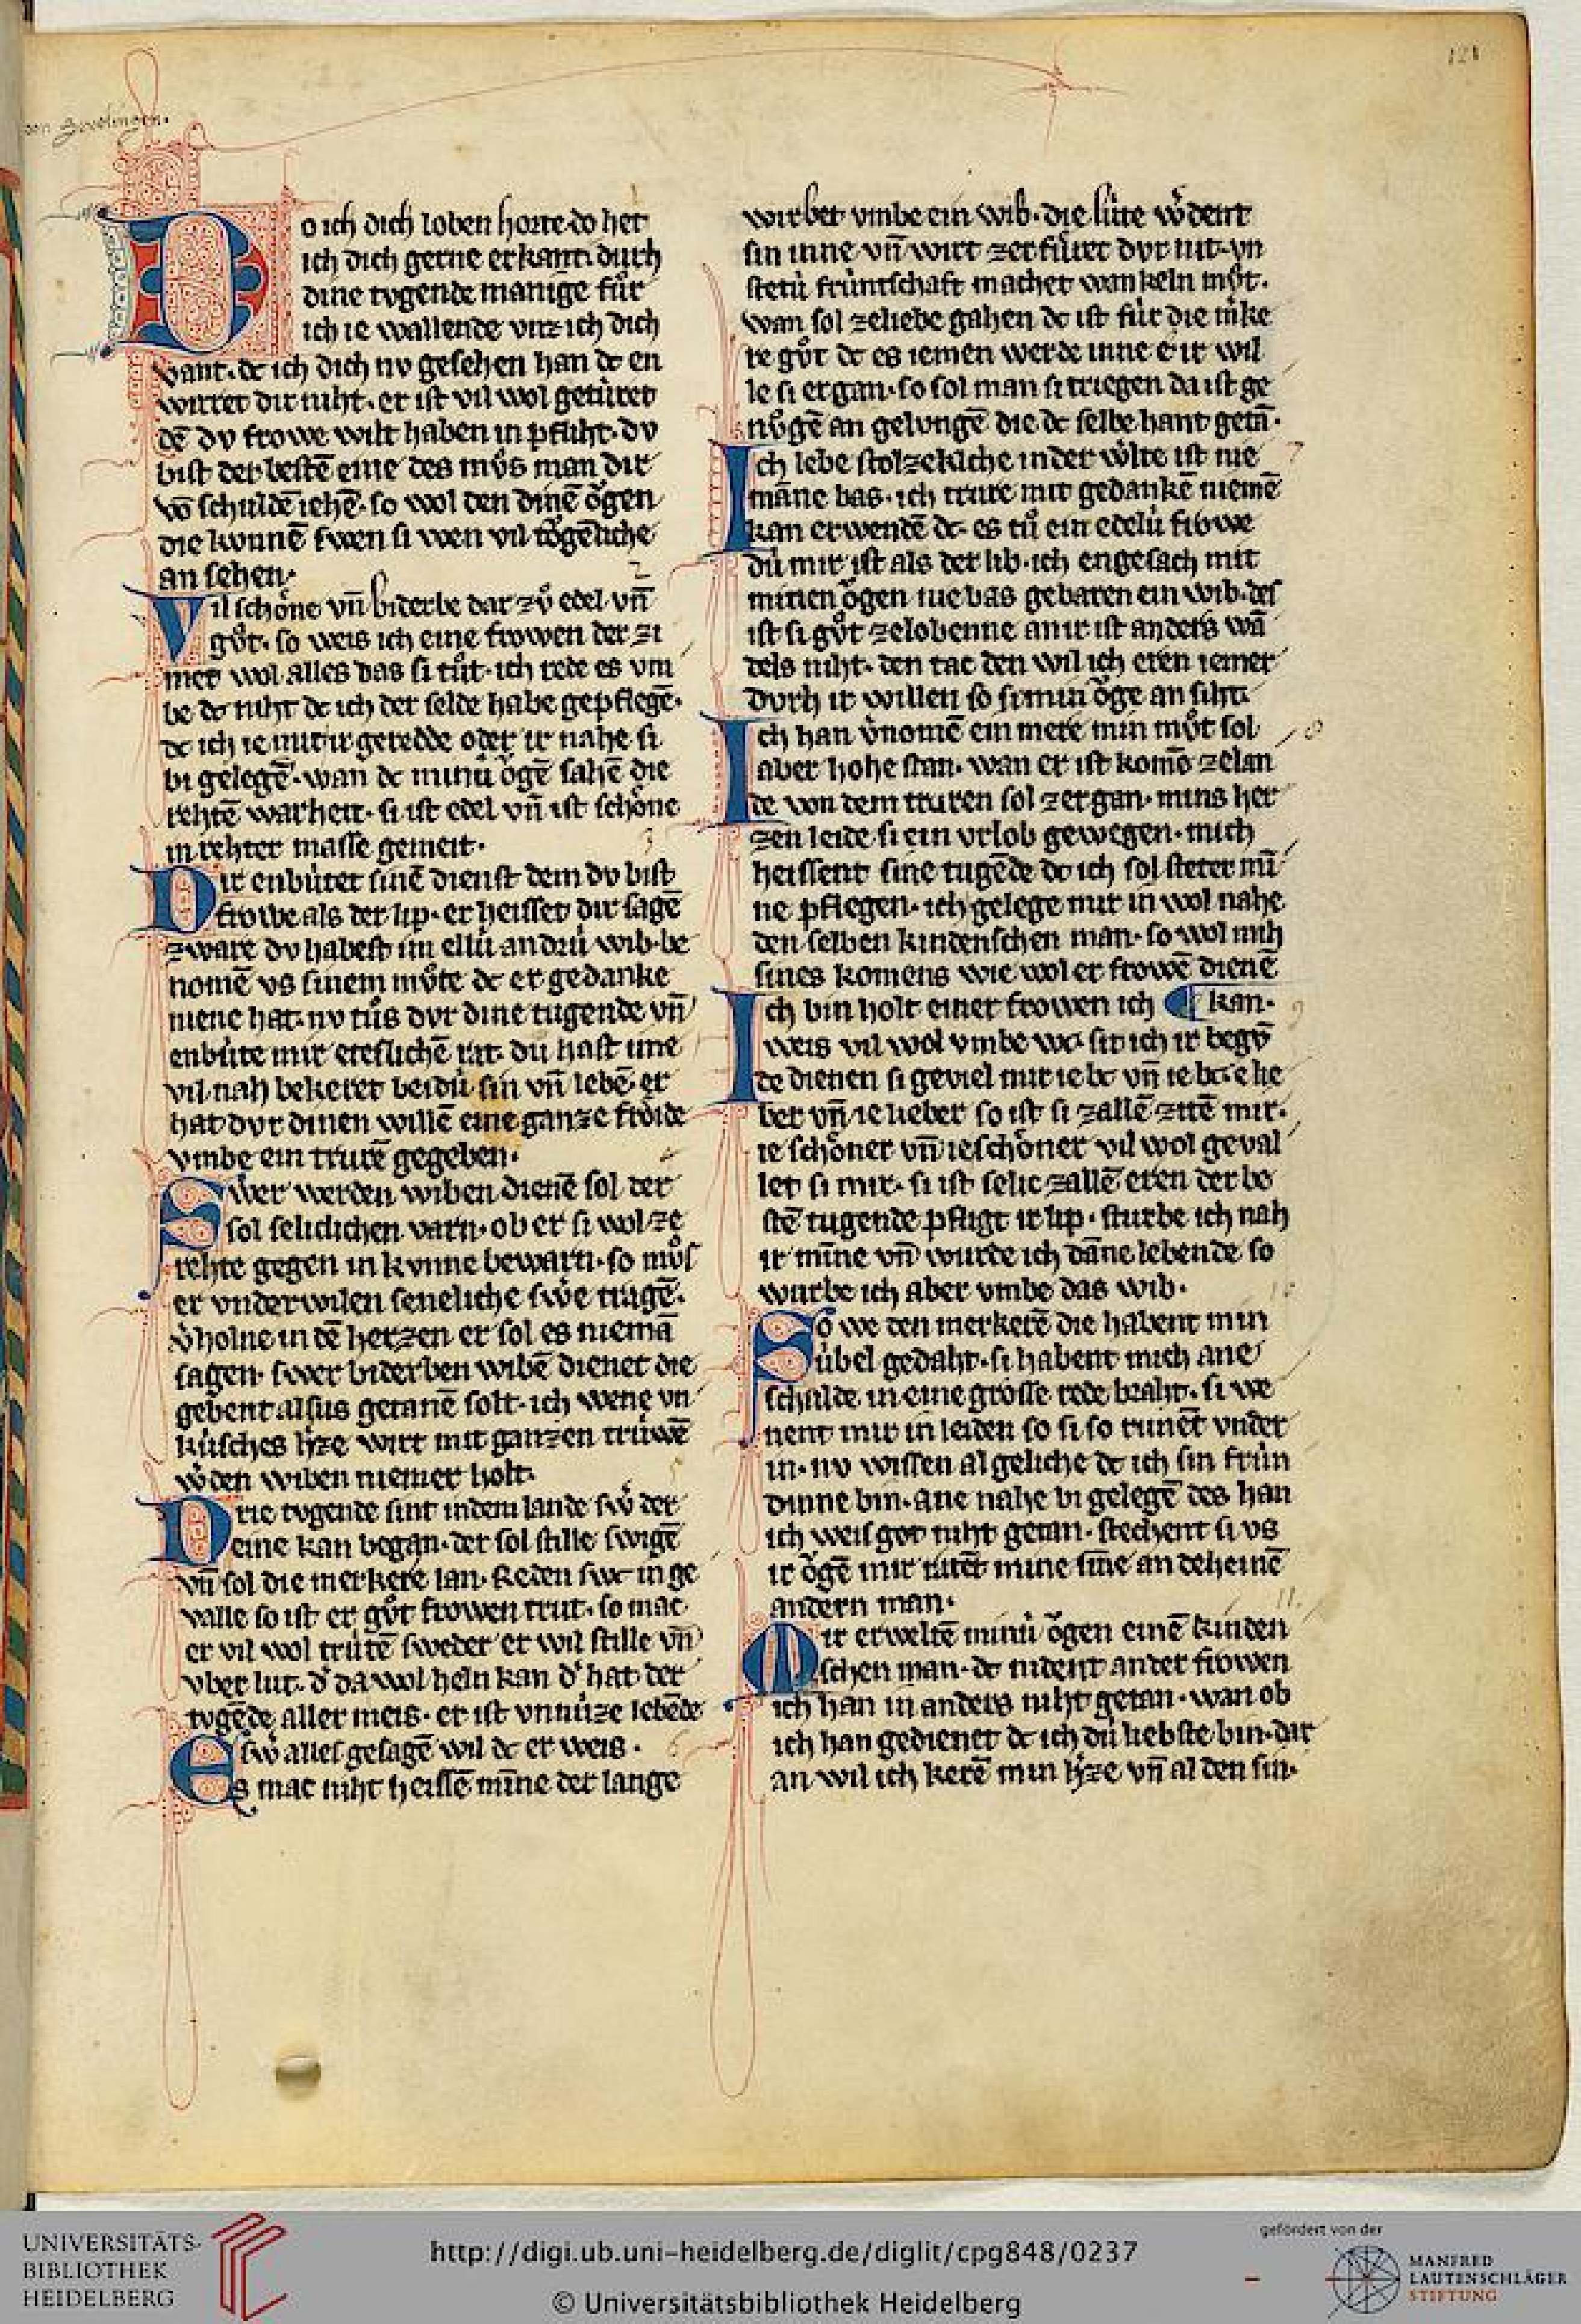 121
von Sevelingen.
Do ich dich loben horte · do het
ich dich gerne erkant · durh
dine tvgende manige fůr
ich ie wallende vnz ich dich
vant · dc ich dich nv gesehen han dc en
wirret dir niht · er ist vil wol getúret
dē dv frowe wilt haben in pfliht · dv
bist der bestē eine des můs man dir
vō schuldē iehē · so wol den dinē ŏgen
die kvnnē swen si wen vil tŏgēliche
an sehen ·
2
Vil schône vn̄ biderbe dar zů edel vn̄
gůt · so weis ich eine frowen der zi
met wol alles das si tůt · ich rede es vm
be dc niht dc ich der selde habe gepflegē ·
dc ich ie mit ir geredde oder ir nahe si
bi gelegē · wan dc minú ŏgē sahē die
rehtē warheit · si ist edel vn̄ ist schône
in rehter masse gemeit ·
3
Dir enbútet sinē dienst dem dv bist
frowe als der lip · er heisset dir sagē
zware dv habest im ellú andrú wib be
nomē vs sinem můte dc er gedanke
niene hat · nv tůs dvr dine tugende vn̄
enbúte mir eteslichē rat · dú hast ime
vil nah bekeret beidú sin vn̄ lebē · er
hat dvr dinen willē eine ganze frôide
vmbe ein trurē gegeben ·
4
Swer werden wiben dienē sol der
sol selidichen varn · ob er si wol ze
rehte gegen in kvnne bewarn · so můs
er vnderwilen seneliche swe͛ tragē ·
v͛holne in dē herzen er sol es niemā
sagen · swer biderben wibē dienet die
gebent alsus getanē solt · ich wene vn
kúsches h͛ze wirt mit ganzen trúwē
w͛den wiben niemer holt ·
5
Drie tvgende sint in dem lande sw͛ der
eine kan began · der sol stille swigē
vn̄ sol die merkere lan · Reden swc in ge
valle so ist er gůt frowen trut · so mac
er vil wol trútē sweder er wil stille vn̄
vber lut · d͛ da wol heln kan d͛ hat der
tvgēde aller meis · er ist vnnúze lebēde
sw͛ alles gesagē wil dc er weis ·
6
Es mac niht heissē minne der lange
wirbet vmbe ein wib · die lúte w͛dent
sin inne vn̄ wirt zerfůret dvr nit · vn
stetú frúntschaft machet wankeln můt ·
wan sol zeliebe gahen dc ist fúr die mke
re gůt dc es iemen werde inne e ir wil
le si ergan · so sol man si triegen da ist ge
nůgē an gelvngē die dc selbe hant getā ·
7
Ich lebe stolzekliche in der w͛lte ist nie
māne bas · ich trure mit gedankē niemē
kan erwendē dc es tů ein edelú frowe
dú mir ist als der lib · ich engesach mit
minen ŏgen nie bas gebaren ein wib · des
ist si gůt zelobenne an ir ist anders wā
dels niht · den tac den wil ich eren iemer
dvrh ir willen so si min ŏge an siht ·
8
Ich han v͛nomē ein mere min můt sol
aber hohe stan · wan er ist komē zelan
de von dem truren sol zergan · mins her
zen leide si ein vrlob gewegen · mich
heissent sine tugēde dc ich sol steter mī
ne pflegen · ich gelege mir in wol nahe
den selben kindenschen man · so wol mih
sines komens wie wol er frowē dienē
Ich bin holt einer frowen ich ¶ kan ·
9
weis vil wol vmbe wc · sit ich ir begō
de dienen si geviel mir ie bc vn̄ ie bc · e lie
ber vn̄ ie lieber so ist si zallē zitē mir ·
ie schôner vn̄ ie schôner vil wol geval
let si mir · si ist selic zallē eren der be
stē tugende pfligt ir lip · sturbe ich nah
ir mīne vn̄ wurde ich dāne lebende so
wurbe ich aber vmbe das wib ·
10
So we den merkerē die habent min
úbel gedaht · si habent mich ane
schulde in eine grosse rede braht · si we
nent mir in leiden so si so runēt vnder
in · nv wissen al geliche dc ich sin frún
dinne bin · ane nahe bi gelegē des han
ich weis got niht getan · stechent si vs
ir ŏgē mir ratēt mine sīne an deheinē
andern man ·
11.
Mir erweltē minú ŏgen einē kinden
schen man · dc nident ander frowen
ich han in anders niht getan · wan ob
ich han gedienet dc ich dú liebste bin · dar
an wil ich kerē min h͛ze vn̄ al den sin ·
UNIVERSITÄTS-
BIBLIOTHEK
HEIDELBERG
http://digi.ub.uni-heidelberg.de/diglit/cpg848/0237
© Universitätsbibliothek Heidelberg
gefördert von der
MANFRED
LAUTENSCHLÄGER
STIFTUNG